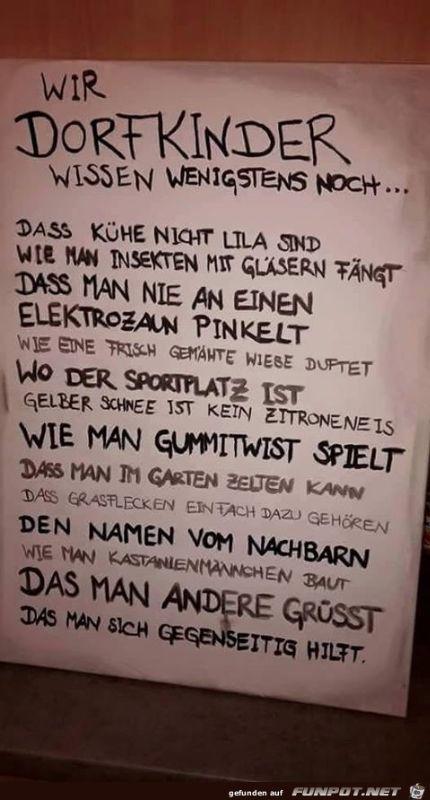 WIR
DORFKINDER
WISSEN WENIGSTENS NOCH...
DASS KÜHE NICHT LILA SIND
WIE MAN INSEKTEN MIT GLÄSERN FÄNGT
DASS MAN NIE AN EINEN
ELEKTROZAUN PINKELT
WIE EINE FRISCH GEMÄHTE WIESE DUFTET
WO DER SPORTPLATZ IST
GELBER SCHNEE IST KEIN ZITRONENEIS
WIE MAN GUMMITWIST SPIELT
DASS MAN IM GARTEN ZELTEN KANN
DASS GRASFLECKEN EINFACH DAZU GEHÖREN
DEN NAMEN VOM NACHBARN
WIE MAN KASTANIENMÄNNCHEN BAUT
DAS MAN ANDERE GRÜSST
DAS MAN SICH GEGENSEITIG HILFT.
gefunden auf FUNPOT.NET